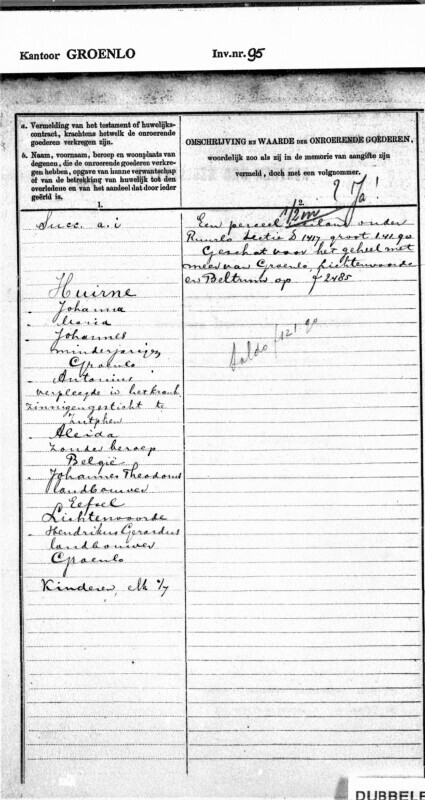 Kantoor GROENLO Inv.nr. 95
a. Vermelding van het testament of huwelijks-
contract, krachtens hetwelk de onroerende
goederen verkregen zijn.
b. Naam, voornaam, beroep en woonplaats van
degenen, die de onroerende goederen verkre-
gen hebben, opgave van hunne verwantschap
of van de betrekking van huwelijk tot den
overledene en van het aandeel dat door ieder
geërfd is.
1.
OMSCHRIJVING EN WAARDE DER ONROERENDE GOEDEREN,
woordelijk zoo als zij in de memorie van aangifte zijn
vermeld, doch met een volgnommer.
2.
? Ja!
1/2 m
Succ. a. i
Een perceel onder
Ruurlo Sectie D 1417 groot 1.41.90
Geschat voor het geheel met
meer van Groenlo, Lichtenvoorde
en Beltrum op f 2485
Saldo f 121.90
Huirne
- Johanna
- Maria
- Johannes
minderjarigen
Groenlo
- Antonius
verpleegde in het krank-
zinnigengesticht te
Zutphen
- Aleida
zonder beroep
België
- Johannes Theodorus
landbouwer
Eefsel
Lichtenvoorde
- Hendrikus Gerardus
landbouwer
Groenlo
Kinderen, elk 1/7
DUBBELE